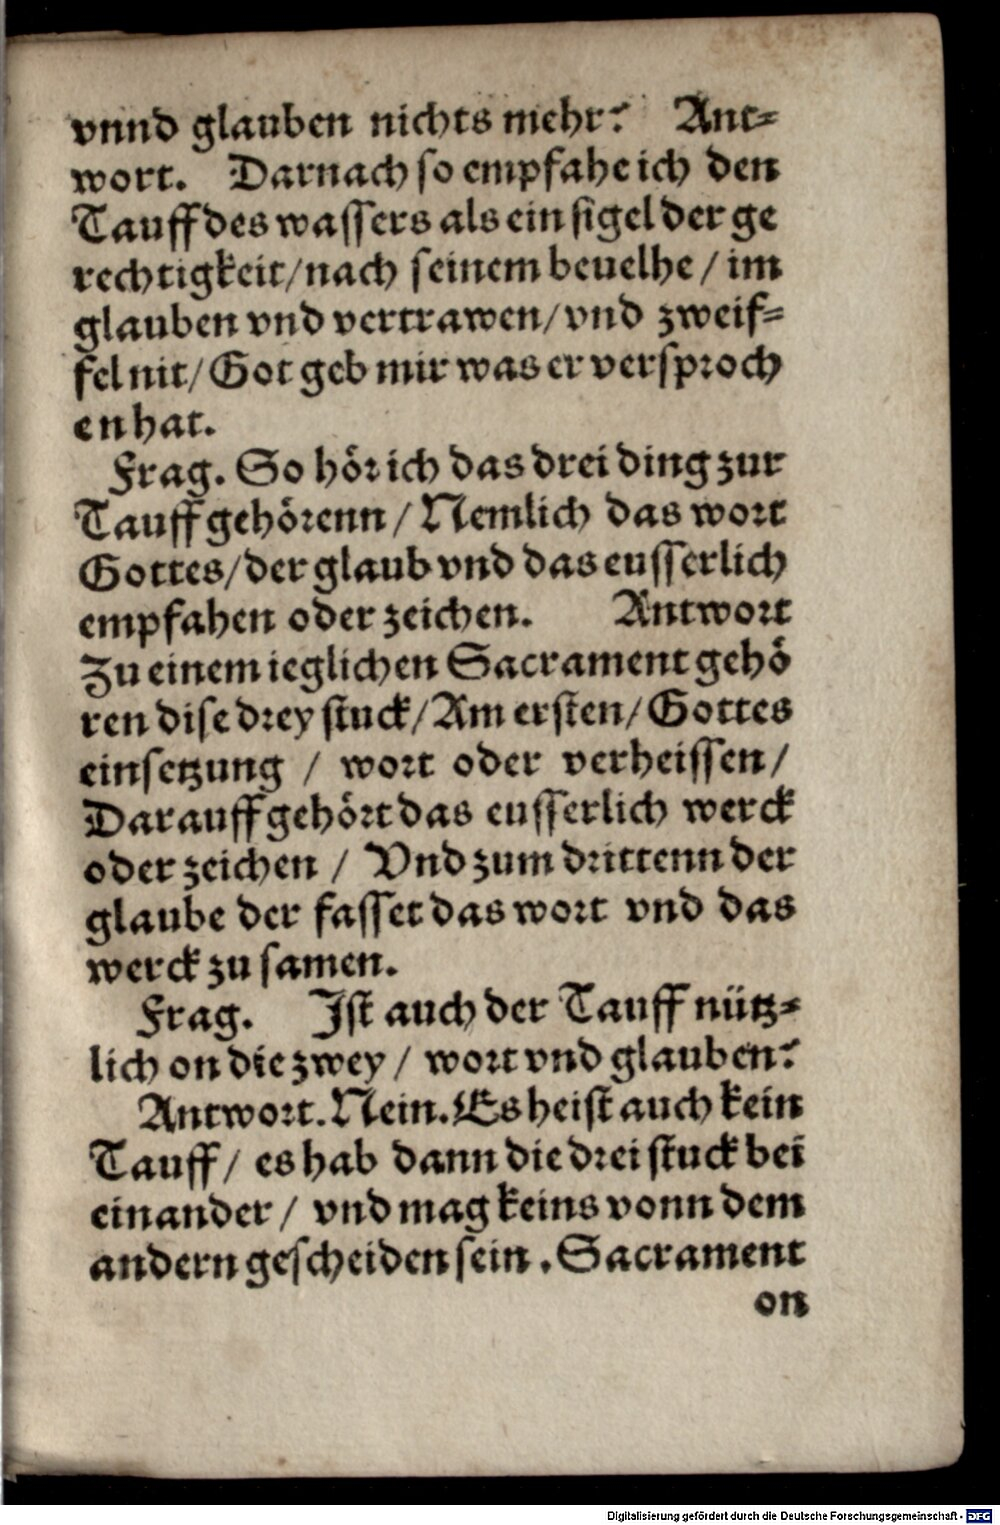 vnnd glauben nichts mehr? Ant-
wort. Darnach so empfahe ich den
Tauff des wassers als ein sigel der ge
rechtigkeit/nach seinem beuelhe / im
glauben vnd vertrawen/vnd zweif-
fel nit/Got geb mir was er versproch
en hat.
Frag. So hör ich das drei ding zur
Tauff gehörenn / Nemlich das wort
Gottes/der glaub vnd das eusserlich
empfahen oder zeichen. Antwort
Zu einem ieglichen Sacrament gehö
ren dise drey stuck/Am ersten/Gottes
einsetzung / wort oder verheissen/
Darauff gehört das eusserlich werck
oder zeichen / Vnd zum drittenn der
glaube der fasset das wort vnd das
werck zu samen.
Frag. Jst auch der Tauff nütz-
lich on die zwey / wort vnd glauben?
Antwort. Nein. Es heist auch kein
Tauff/ es hab dann die drei stuck bei
einander/ vnd mag keins vonn dem
andern gescheiden sein. Sacrament
on
Digitalisierung gefördert durch die Deutsche Forschungsgemeinschaft - DFG